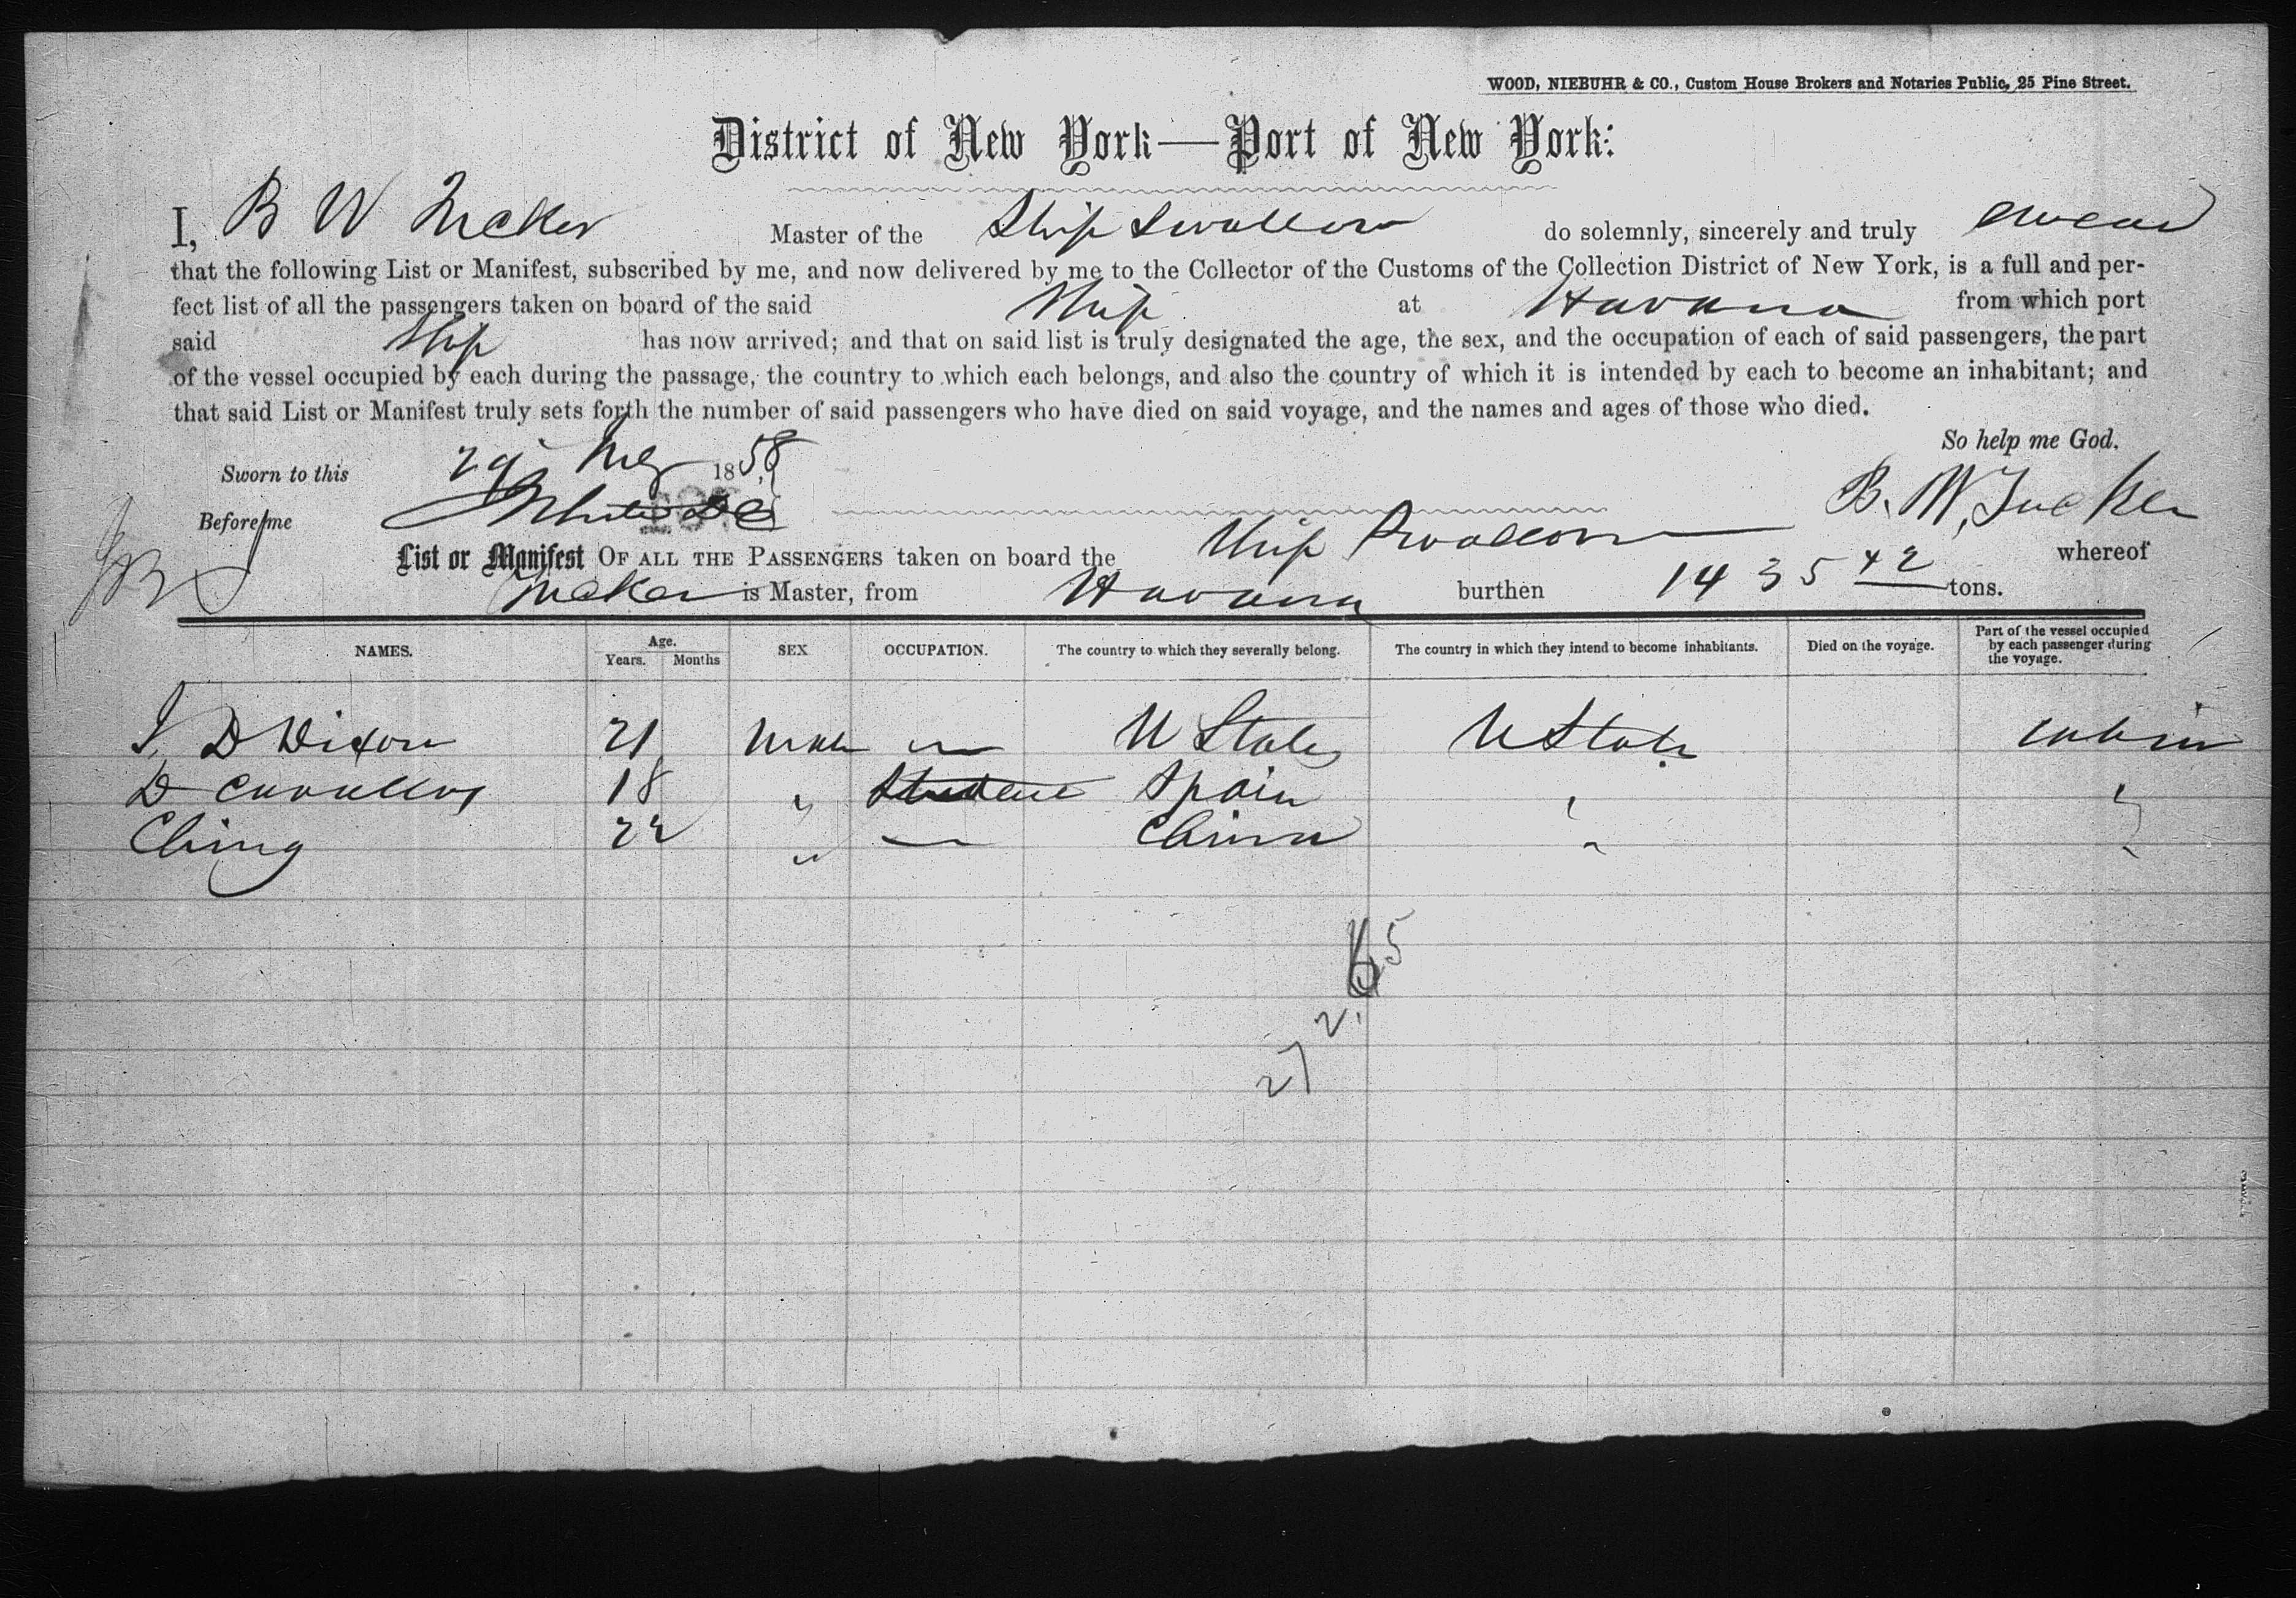 WOOD, NIEBUHR & CO., Custom House Brokers and Notaries Public, 25 Pine Street.
District of New York—Port of New York:
I, B W Tucker Master of the Ship Swallow do solemnly, sincerely and truly swear
that the following List or Manifest, subscribed by me, and now delivered by me to the Collector of the Customs of the Collection District of New York, is a full and per-
fect list of all the passengers taken on board of the said Ship at Havana from which port
said Ship has now arrived; and that on said list is truly designated the age, the sex, and the occupation of each of said passengers, the part
of the vessel occupied by each during the passage, the country to which each belongs, and also the country of which it is intended by each to become an inhabitant; and
that said List or Manifest truly sets forth the number of said passengers who have died on said voyage, and the names and ages of those who died.
So help me God.
Sworn to this 29 1858
Before me B. W. Tucker
List or Manifest OF ALL THE PASSENGERS taken on board the Ship Swallow whereof
Tucker is Master, from Havana burthen 1435 42 tons.
NAMES. Age. Years. Months SEX OCCUPATION. The country to which they severally belong. The country in which they intend to become inhabitants. Died on the voyage. Part of the vessel occupied by each passenger during the voyage.
D Dixon 21 Male — U States U States cabin
D 18 " Student Spain " "
Ching 22 " — China " "
5
2
27